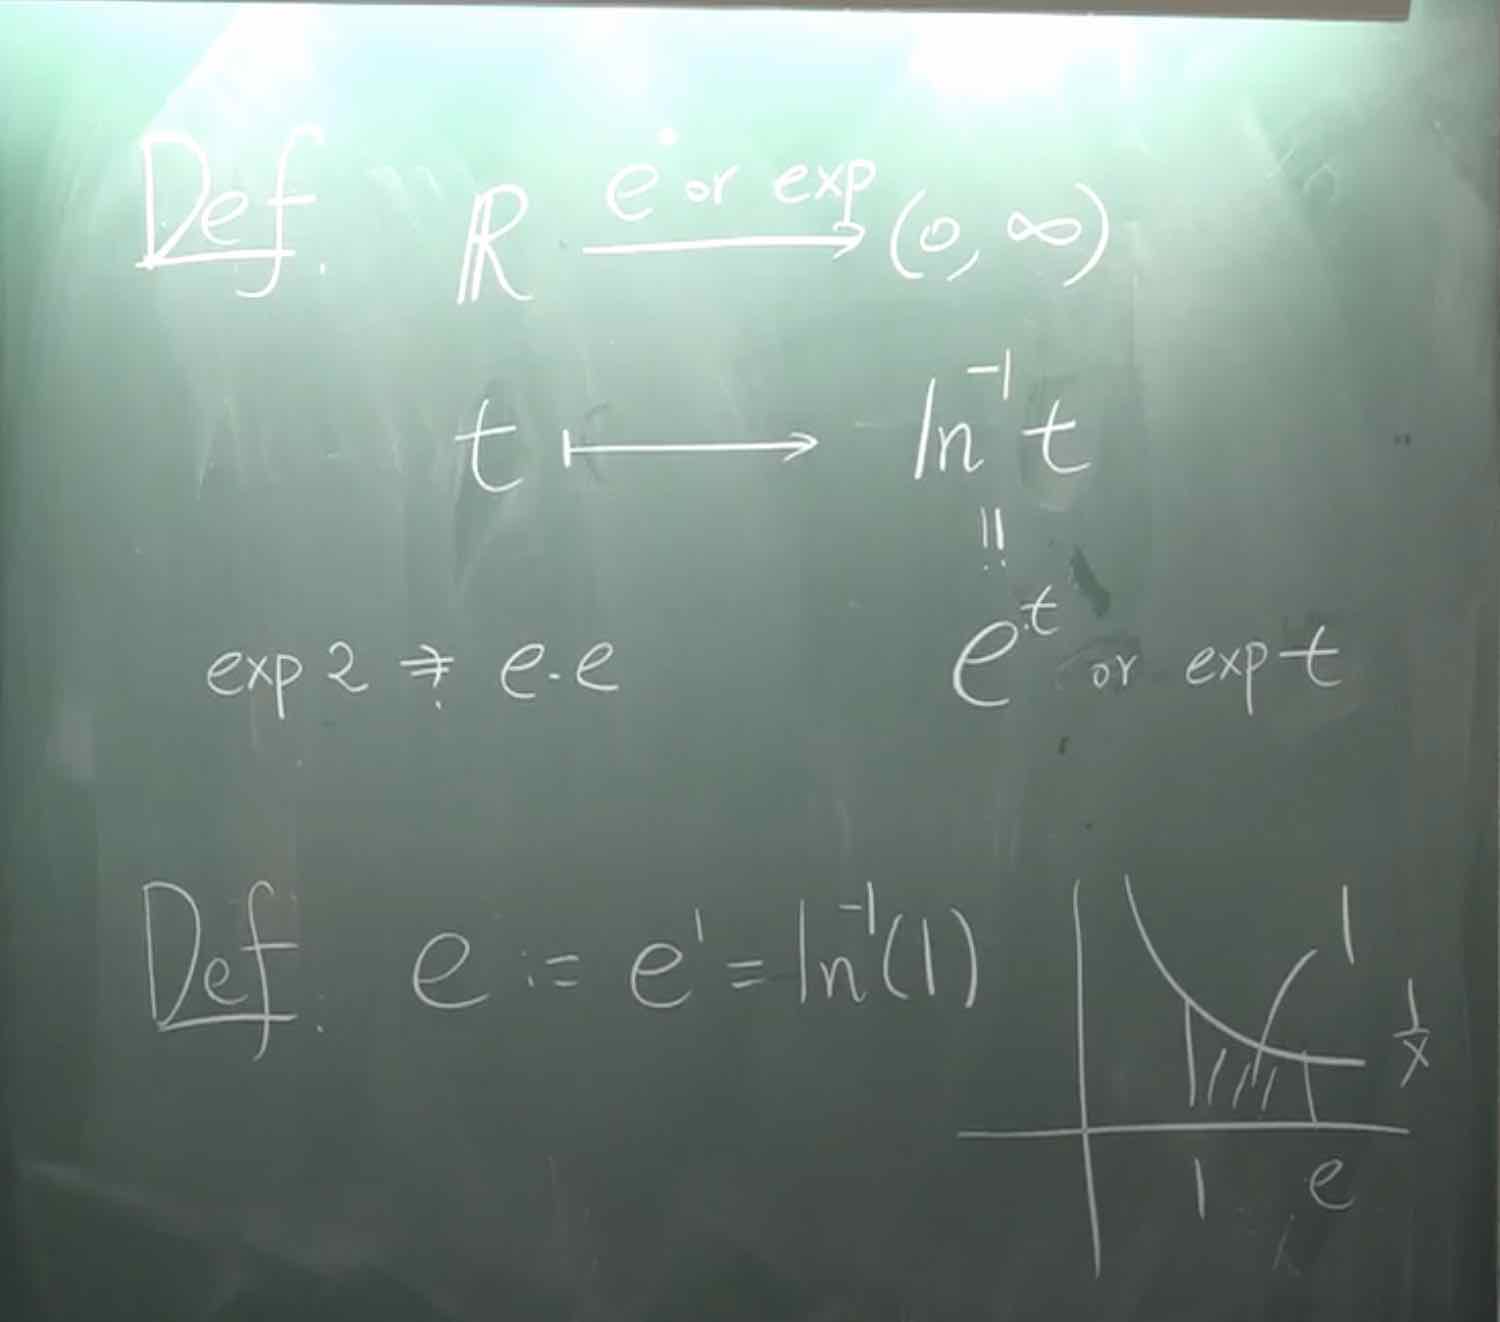 Def. ℝ —e^• or exp→ (0, ∞)
t ⟼ ln⁻¹ t
‖
exp 2 ≠ e·e
eᵗ or exp t
Def. e := e¹ = ln⁻¹(1)
1
1/x
1 e